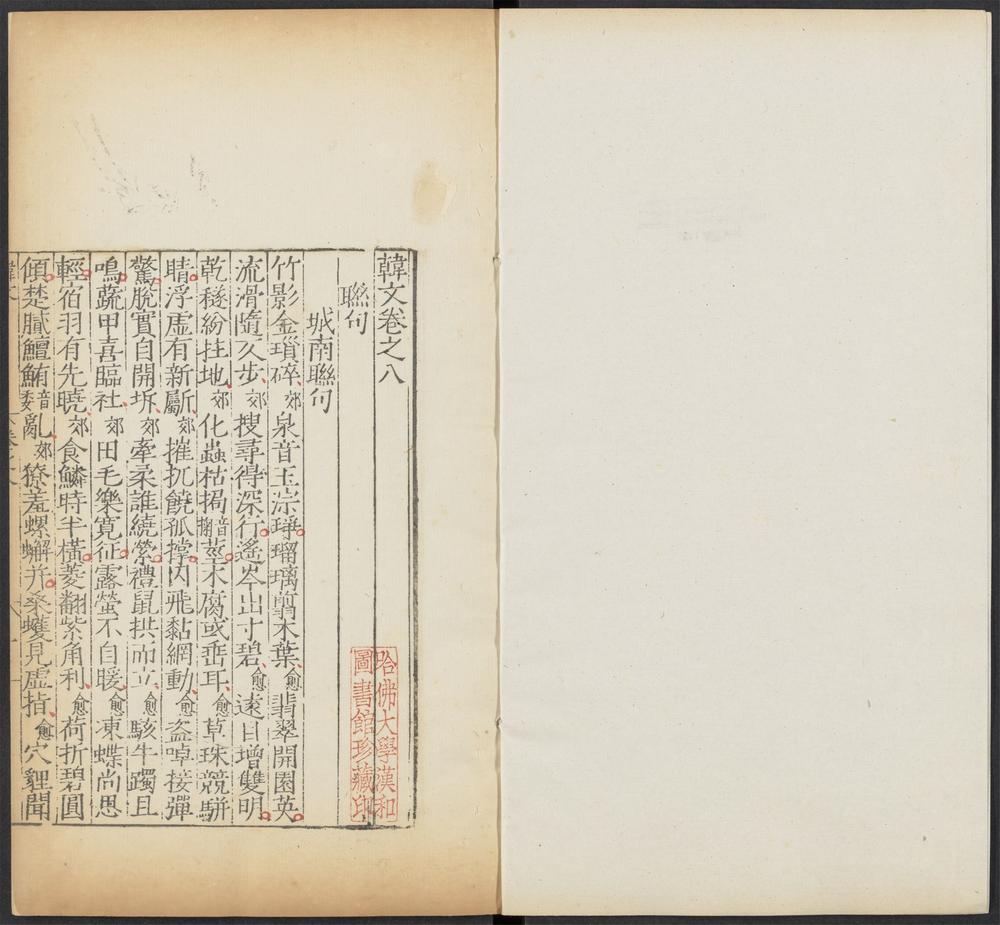 韓文卷之八
聯句
城南聯句
竹影金瑣碎郊泉音玉淙琤瑠璃翦木葉愈翡翠開園英
流滑隨仄步郊搜尋得深行遙岑出寸碧愈遠目增雙明
乾穟紛拄地郊化蟲枯挶音掬莖木腐或垂耳愈草珠競駢
睛浮虛有新斸郊摧扤饒孤撐囚飛黏網動愈盜啅接彈
驚脫實自開坼郊牽柔誰繞縈禮鼠拱而立愈駭牛躅且
鳴蔬甲喜臨社郊田毛樂寬征露螢不自暖愈凍蝶尚思
輕宿羽有先曉郊食鱗時半橫菱翻紫角利愈荷折碧圓
傾楚膩鱣鮪音委亂郊獠羞螺蠏并桑蠖見虛指愈穴貍聞
哈佛大學漢和
圖書館珍藏印